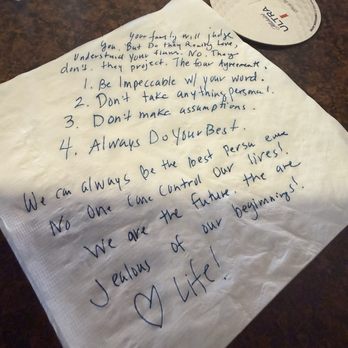 Your family will judge
You. But Do they Really Love,
Understand your flaws. No. They
don't, they project. The four Agreements.
1. Be Impeccable w/ your word.
2. Don't take anything personal.
3. Don't make assumptions.
4. Always Do Your Best.
We can always be the best Persu eva
No One Canc Control Our lives!
We are the future. the are
Jealous of our beginnings!
♡ Life!
ULTRA